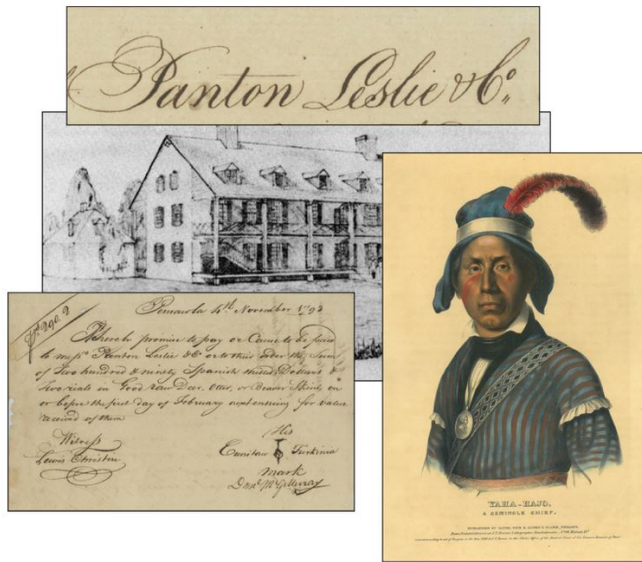 Panton Leslie & Co.
Pensacola 4th November 1793
I hereby promise to pay or Cause to be paid
to messrs Panton Leslie & Co or to their order the Sum
of Two hundred & ninety Spanish milled Dollars &
Two rials in Good raw Deer, Otter, or Beaver Skins on
or before the first day of February next ensuing for value
received of them
Witness
Lewis Christin
His
mark
YAHA-HAJO,
A SEMINOLE CHIEF.